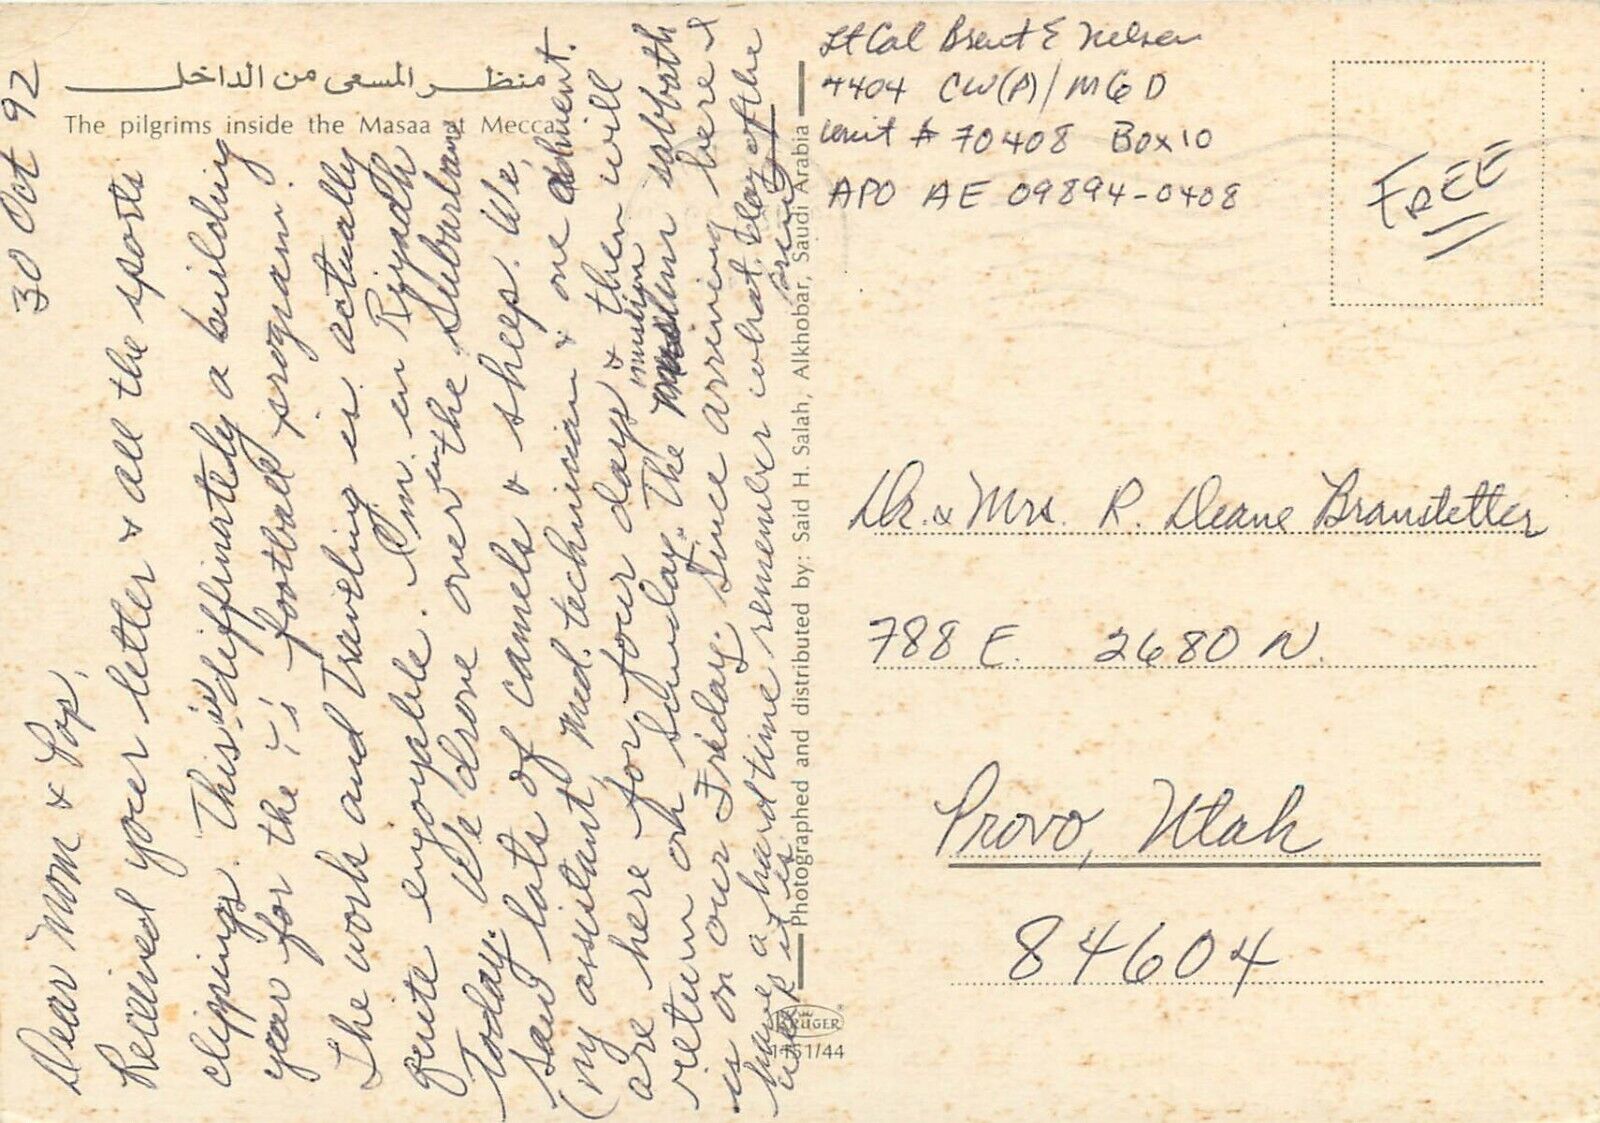 منظر المسعى من الداخل
The pilgrims inside the Masaa at Mecca
30 Oct 92
Dear Mom & Pop,
Received your letter & all the sports
clippings. This is deffinartely a building
year for the Y's football program.
The work and traveling is actually
quite enjoyable. I'm in Riyadh
today. We drove over in the Suburban &
saw lots of camels & sheep. We,
(my assistant, Med. technician & one
are here for four days & then will
return on Sunday. The muslim sabbath
is on our Friday. Since arriving here I
have a hard time remember what day of the
week it is
Photographed and distributed by: Said H. Salah, Alkhobar, Saudi Arabia
KRUGER
1151/44
Lt Col Brent E Nelsen
4404 CW(P)/MGD
Unit # 70408 Box 10
APO AE 09894-0408
FREE
Dr. & Mrs. R. Deane Branstetter
788 E. 2680 N.
Provo, Utah
84604